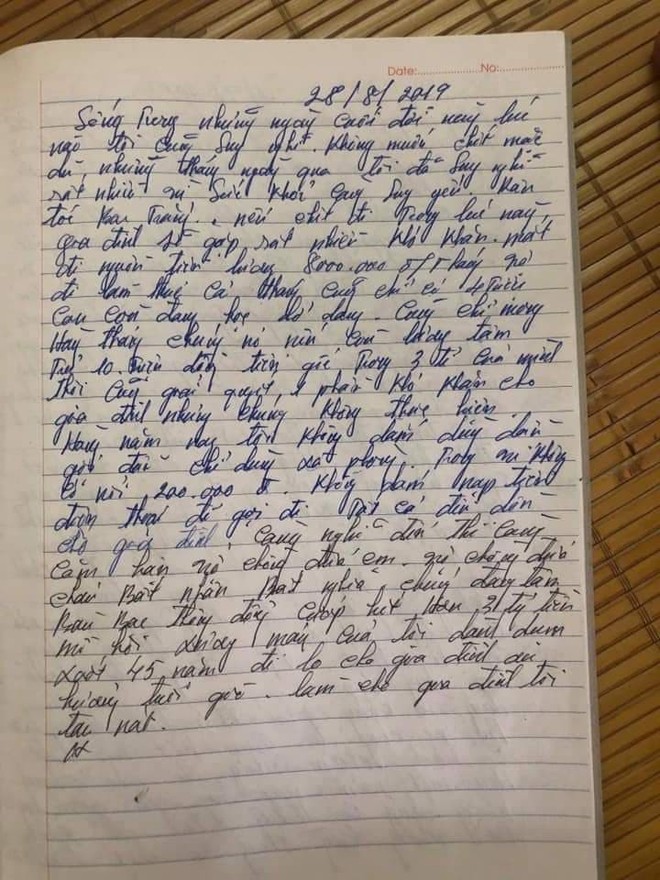 Date:..................No:..................
28/8/2019
Sống Trong những ngày cuối đời này lúc
nào tôi cũng suy nghĩ. Không muốn chết mặc
dù, những tháng ngày qua tôi đã suy nghĩ
rất nhiều vì sức khỏe càng suy yếu. Hàn
tôi Bạc Trắng. nếu chết đi Trong lúc này,
gia đình sẽ gặp rất nhiều khó khăn. mất
đi nguồn tiền lương 8000.000 đ/Tháng vợ
đi làm thuê cả tháng cũng chỉ có 4 Triệu
con còn đang học dở dang. Cũng chỉ mong
Hàng tháng chúng nó nếu còn lương tâm
Trả 10. Triệu đồng tiền gốc Trong 3 tỉ của mình
thôi cũng giải quyết 1 phần khó khăn cho
gia đình nhưng chúng không thực hiện.
Hàng năm nay tôi không dám dùng dầu
gội đầu chỉ dùng xà phòng. Trong ví không
có nổi 200.000 đ. Không dám nạp tiền
điện thoại để gọi đi Tất cả điều dồn
cho gia đình. Càng nghĩ đến thì Càng
Căm hận vợ chồng đứa em. vợ chồng đứa
cháu Bất nhân Bất nghĩa, chúng đang tâm
Bàn Bạc thông đồng cướp hết Hơn 3 tỷ tiền
mồ hôi xương máu của tôi dành dụm
suốt 45 năm để lo cho gia đình an
hưởng tuổi già. làm cho gia đình tôi
tan nát.